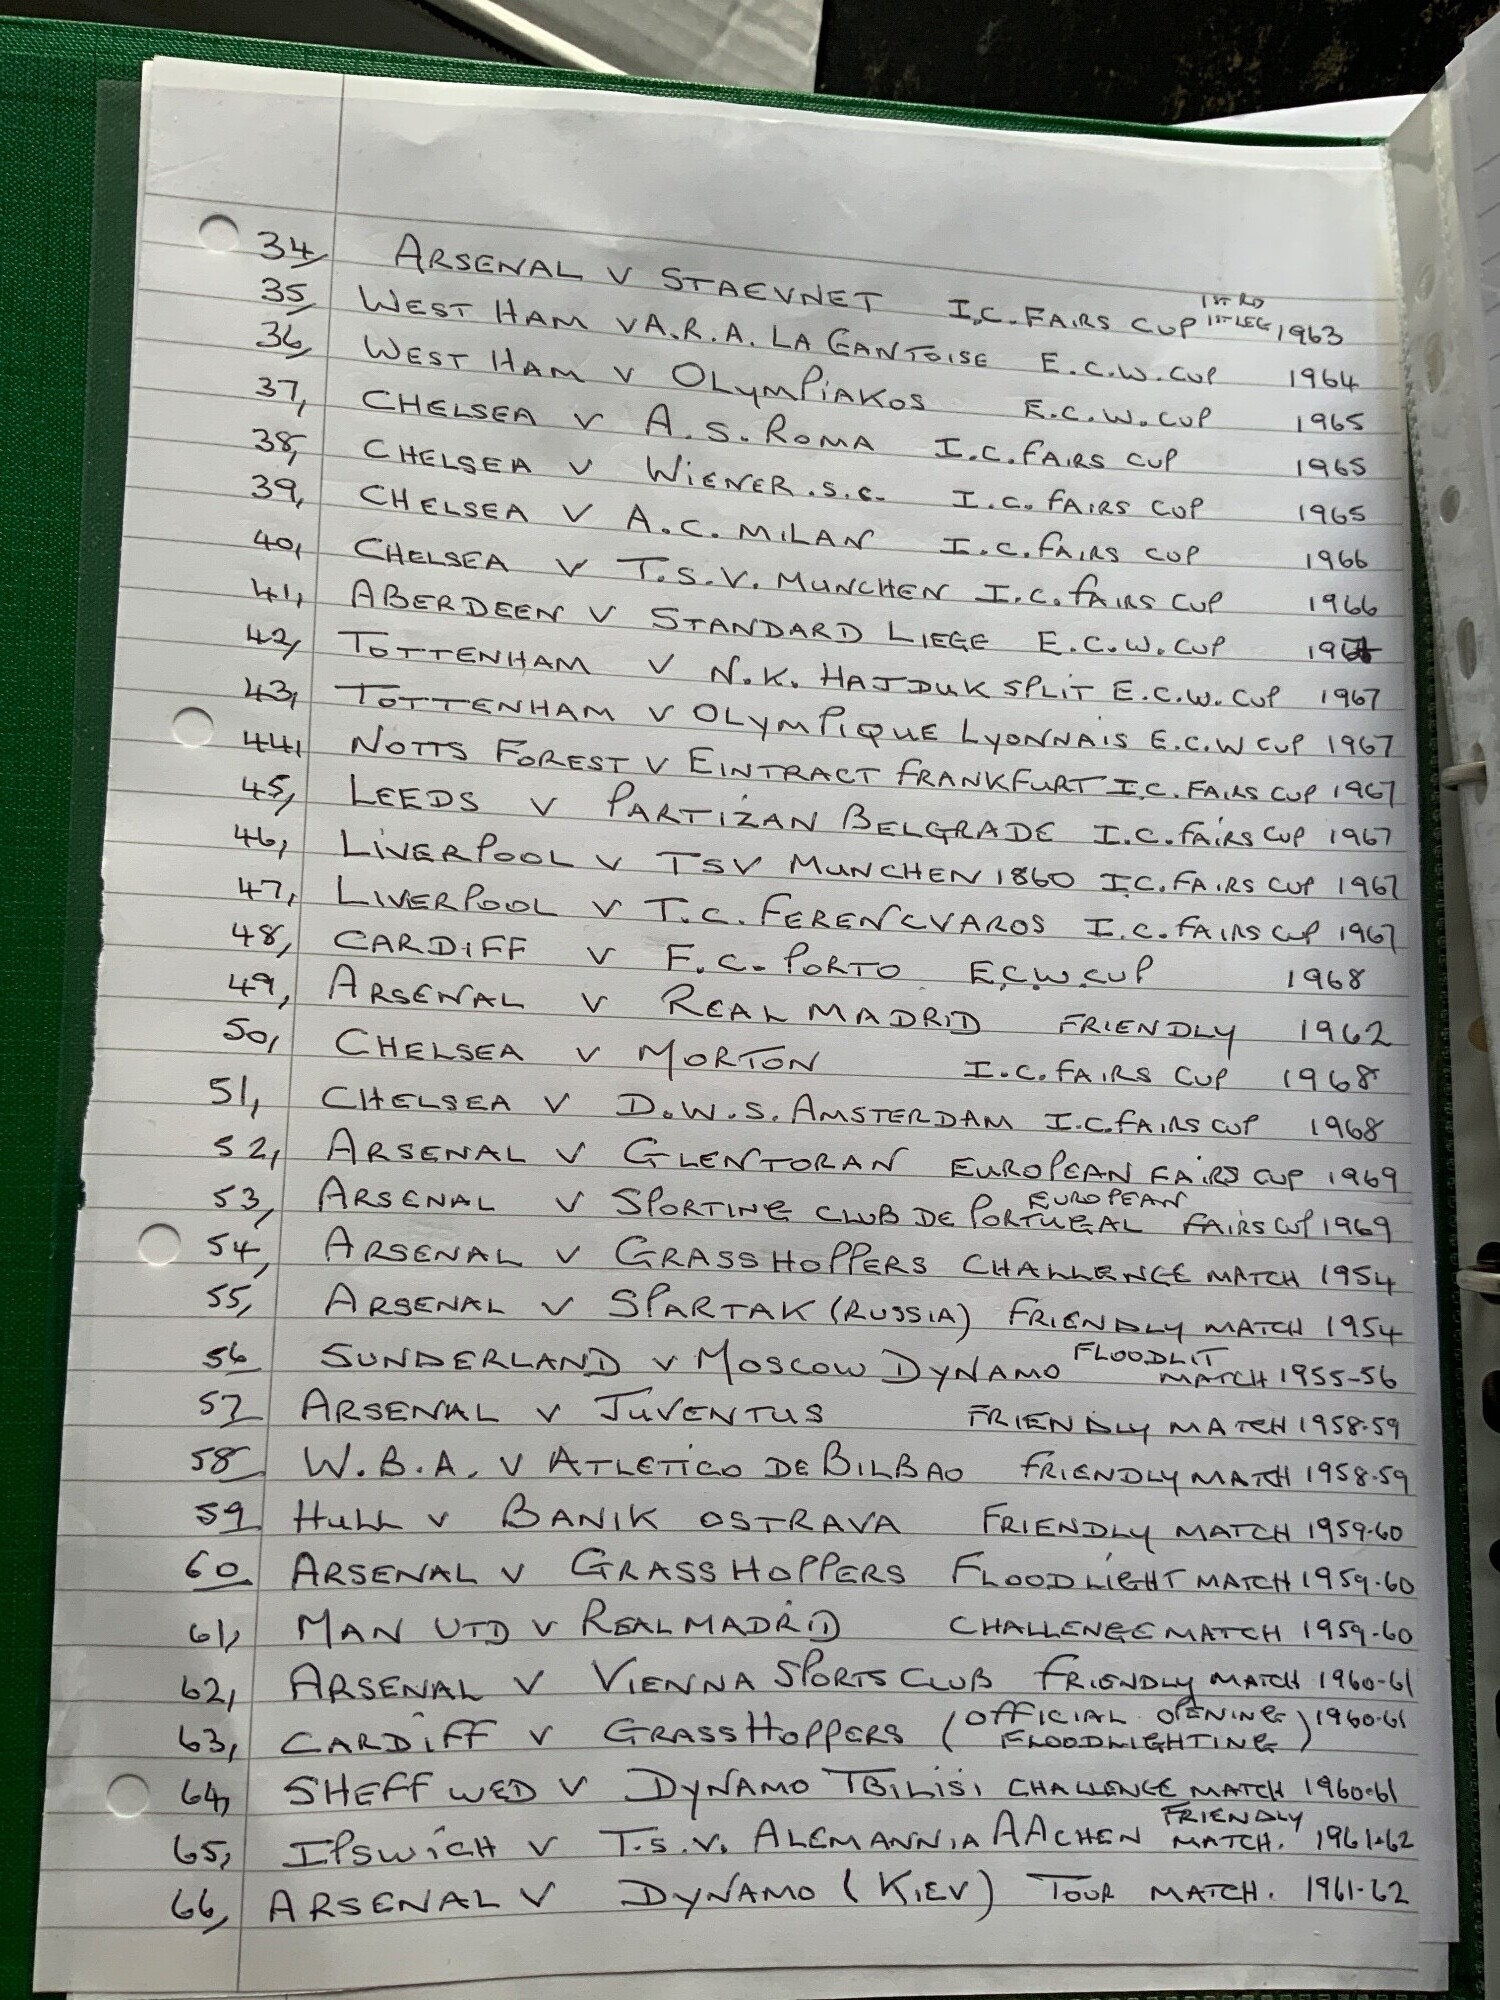 34, ARSENAL V STAEVNET I.C. FAIRS CUP 1ST RD 1ST LEG 1963
35, WEST HAM V A.R.A. LA GANTOISE E.C.W. CUP 1964
36, WEST HAM V OLYMPIAKOS E.C.W. CUP 1965
37, CHELSEA V A.S. ROMA I.C. FAIRS CUP 1965
38, CHELSEA V WIENER S.C. I.C. FAIRS CUP 1965
39, CHELSEA V A.C. MILAN I.C. FAIRS CUP 1966
40, CHELSEA V T.S.V. MUNCHEN I.C. FAIRS CUP 1966
41, ABERDEEN V STANDARD LIEGE E.C.W. CUP
42, TOTTENHAM V N.K. HAJDUK SPLIT E.C.W. CUP 1967
43, TOTTENHAM V OLYMPIQUE LYONNAIS E.C.W CUP 1967
44, NOTTS FOREST V EINTRACT FRANKFURT I.C. FAIRS CUP 1967
45, LEEDS V PARTIZAN BELGRADE I.C. FAIRS CUP 1967
46, LIVERPOOL V TSV MUNCHEN 1860 I.C. FAIRS CUP 1967
47, LIVERPOOL V T.C. FERENCVAROS I.C. FAIRS CUP 1967
48, CARDIFF V F.C. PORTO E.C.W. CUP 1968
49, ARSENAL V REAL MADRID FRIENDLY 1962
50, CHELSEA V MORTON I.C. FAIRS CUP 1968
51, CHELSEA V D.W.S. AMSTERDAM I.C. FAIRS CUP 1968
52, ARSENAL V GLENTORAN EUROPEAN FAIRS CUP 1969
53, ARSENAL V SPORTING CLUB DE PORTUGAL EUROPEAN FAIRS CUP 1969
54, ARSENAL V GRASSHOPPERS CHALLENGE MATCH 1954
55, ARSENAL V SPARTAK (RUSSIA) FRIENDLY MATCH 1954
56 SUNDERLAND V MOSCOW DYNAMO FLOODLIT MATCH 1955-56
57 ARSENAL V JUVENTUS FRIENDLY MATCH 1958-59
58 W.B.A. V ATLETICO DE BILBAO FRIENDLY MATCH 1958-59
59 HULL V BANIK OSTRAVA FRIENDLY MATCH 1959-60
60 ARSENAL V GRASSHOPPERS FLOODLIGHT MATCH 1959-60
61, MAN UTD V REAL MADRID CHALLENGE MATCH 1959-60
62, ARSENAL V VIENNA SPORTS CLUB FRIENDLY MATCH 1960-61
63, CARDIFF V GRASSHOPPERS (OFFICIAL OPENING FLOODLIGHTING) 1960-61
64, SHEFF WED V DYNAMO TBILISI CHALLENGE MATCH 1960-61
65, IPSWICH V T.S.V. ALEMANNIA AACHEN FRIENDLY MATCH. 1961-62
66, ARSENAL V DYNAMO (KIEV) TOUR MATCH. 1961-62